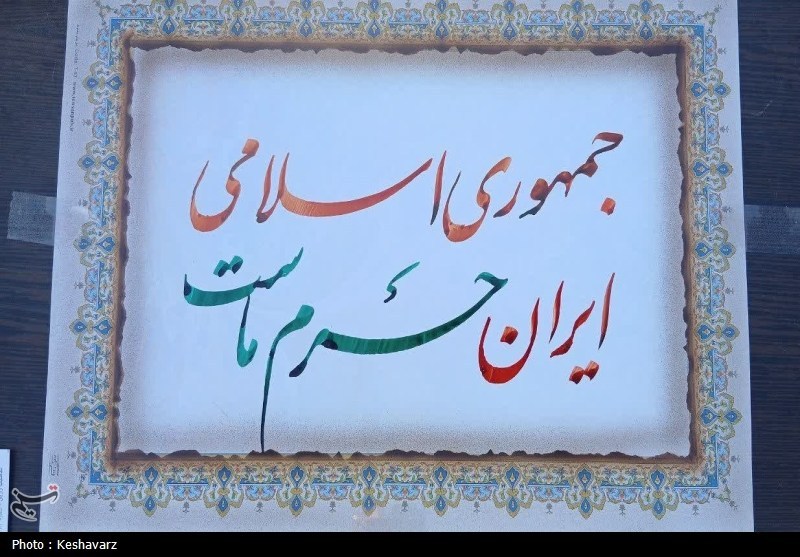 جمهوری اسلامی
ایران حرم ماست
Photo : Keshavarz